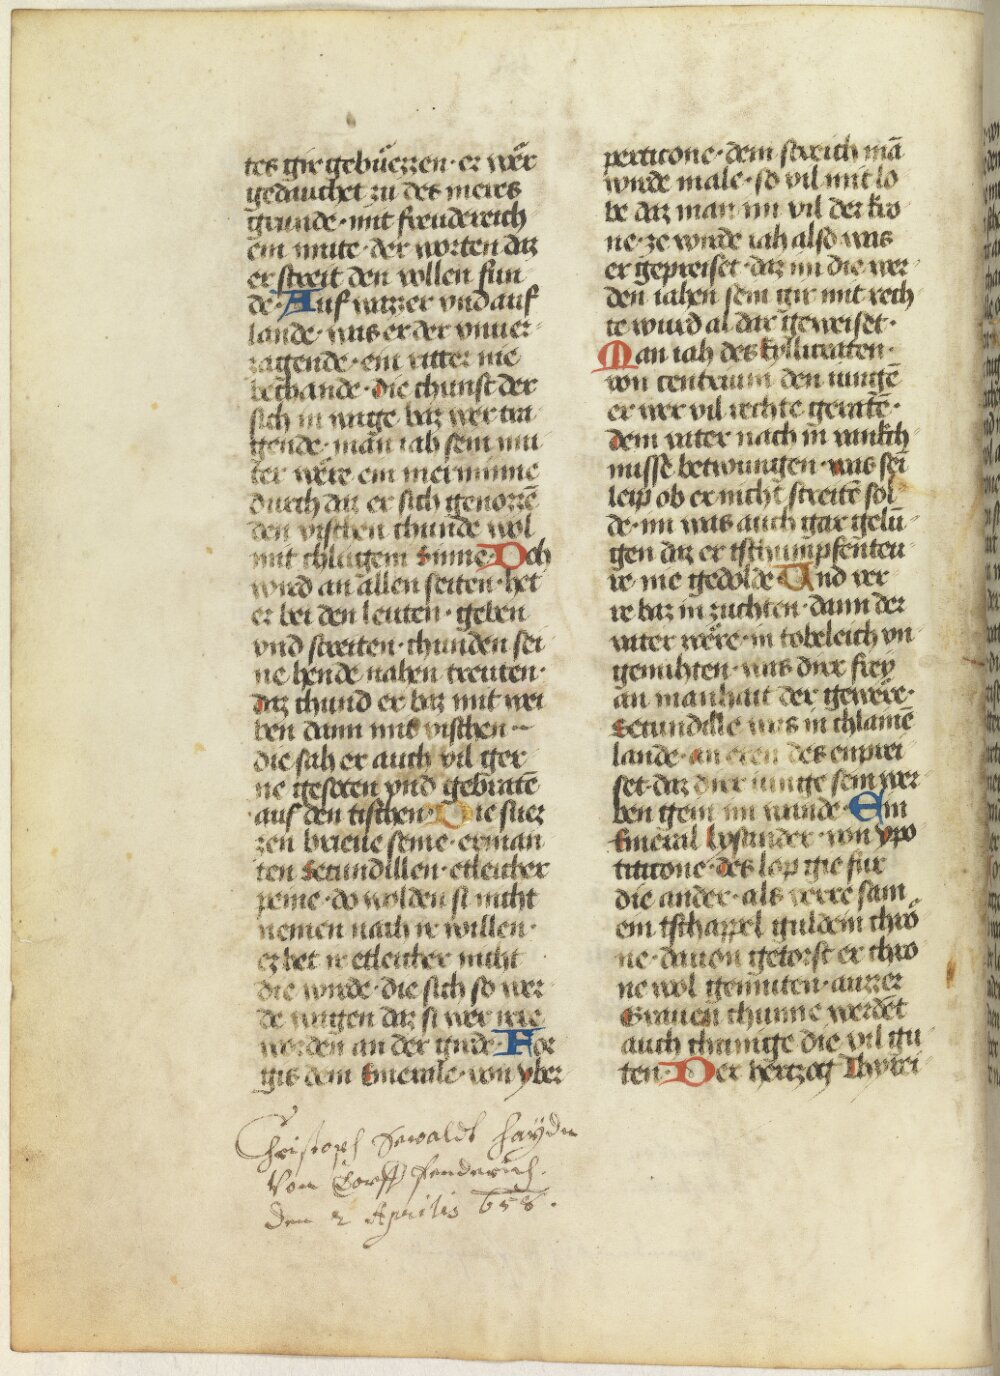 tes gir gebu̍ezzen · er we̍r
gedauchet zu des meres
grunde · mit freudereich
em mute · der worten daz
er streit den vollen fun
de · Auf wazzer vnd auf
lande · was er der vnuer-
zagende · ein ritter nie
bechande · die chunst der
sich in wage baz wer tra
gende · man iah sein mu
ter we̍re ein merminne
durch daz er sich genozzē
den vischen chunde wol
mit chlugem sinne · Och
wird an allen seiten · het
er bei den leuten · geben
vnd streiten · chunden sei
ne hende nahen treuten ·
daz chund er baz mit wei
ben dann mit vischen ·
die sah er auch vil ger
ne gesoten vnd gebratē
auf den tischen · Die suez
zen brieue seine · erman
ten Secundillen · etleicher
peine · do wolden si nicht
nemen nach ir willen ·
ez het ir etleicher nicht
die wirde · die sich so wer
de wugen daz si wer wie
worden an der girde · For
gis dem Emerale · von yber
perticone · dem streich mā
wirde male · so vil mit lo
be daz man im vil der kro
ne · ze wirde iah also was
er gepreiset · daz im die wer
den iahen sein gir mit rech
te wurd al dar geweiset ·
Man iah des kylliuraten ·
von centrium den iungē
er wer vil rechte geratē ·
dem vater nach in vankch
nusse betwungen · was sei
leip ob er nicht streitē sol
de · im was auch gar gelū-
gen daz er tschumpfenteu
re · nie gedolde Und wer
re baz in zuchten · dann der
vater we̍re · in tobeleich vn
genuhten · was dirr frey
an manhait der gewe̍re ·
Secundille was in chlainē
lande · an eren des enprei
set · daz dirr iunge sein wer
ben gein im wande · Ein
Emeral lysander · von ypo
titicone · des lop gie fur
die ander · als verre sam
ein tschappel guldein chro̍
ne · dauon getorst er chro
ne wol gemuten · auzzer
Grauen chunne werdēt
auch chunige die vil gu
ten · Der hertzog Thyrei
Christoph Sewaldt Hayden
Vom Dorff Fenderich.
den 2 Aprilis 658.